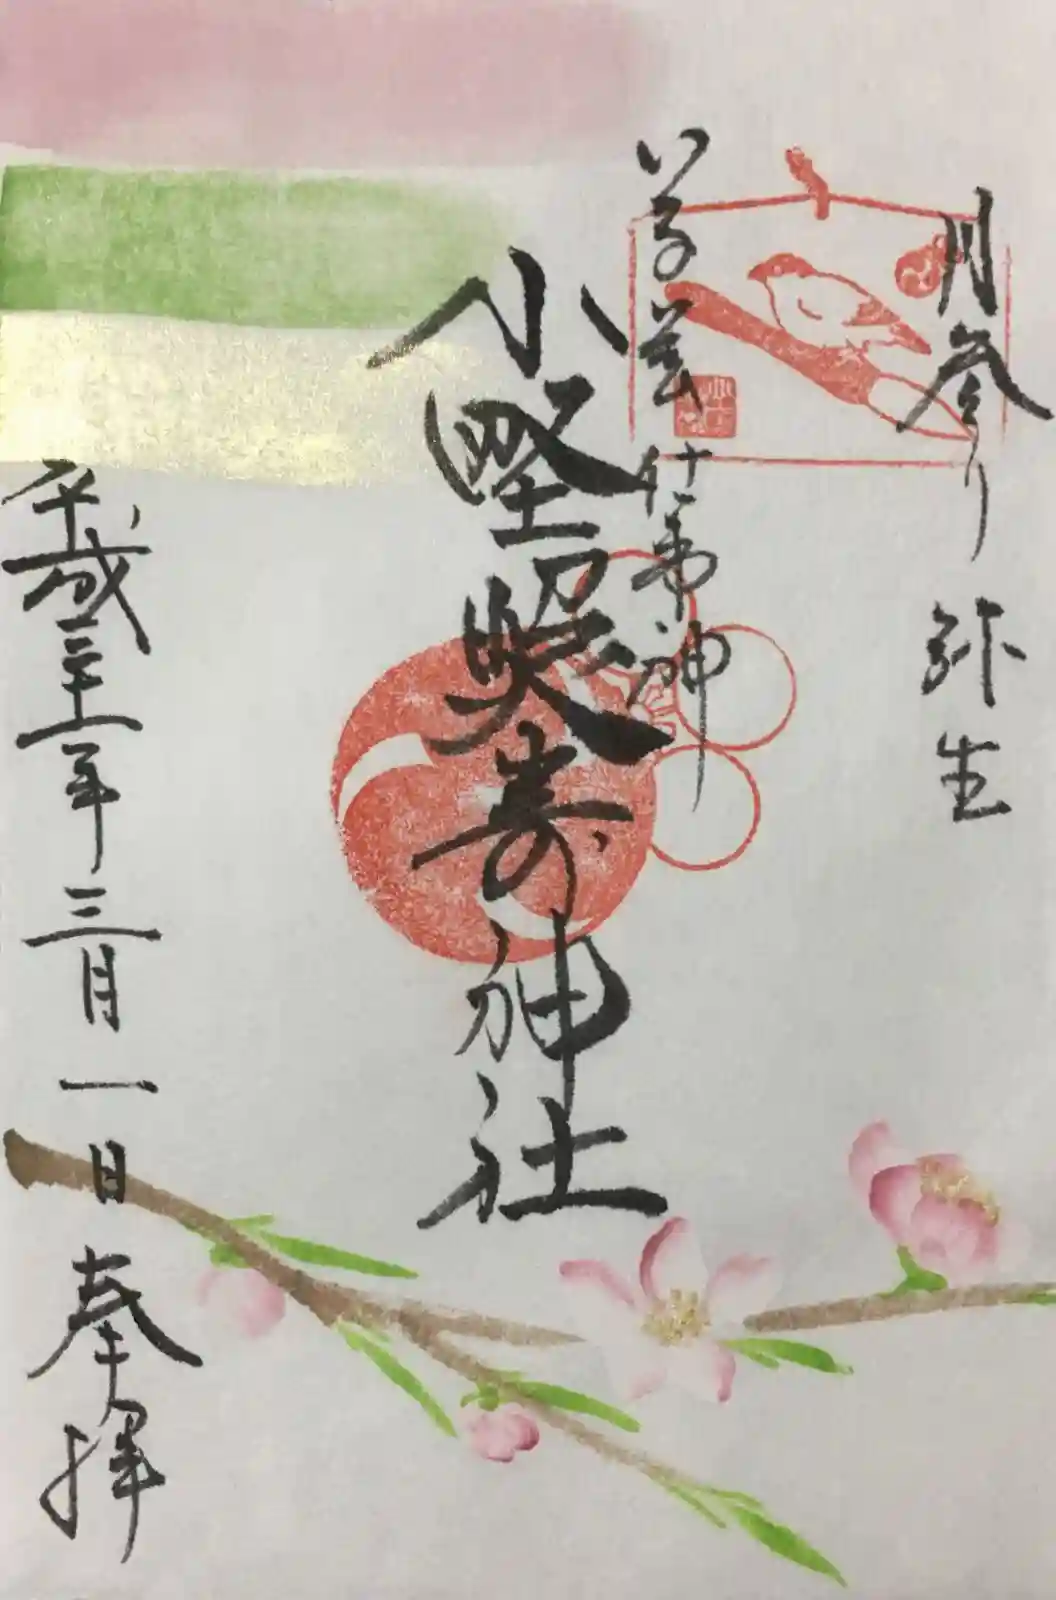 月参り 弥生
学芸 仕事神
小野照崎神社
平成三十一年三月一日 奉拝